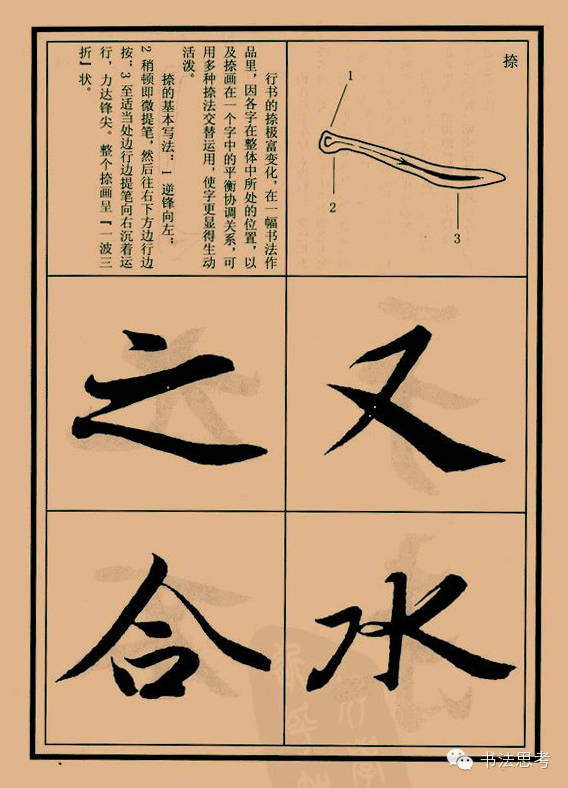 捺
1
2
3
行书的捺极富变化，在一幅书法作
品里，因各字在整体中所处的位置，以
及捺画在一个字中的平衡协调关系，可
用多种捺法交替运用，使字更显得生动
活泼。
捺的基本写法：1 逆锋向左；
2 稍顿即微提笔，然后往右下方边行边
按；3 至适当处边行边提笔向右沉着运
行，力达锋尖。整个捺画呈『一波三
折』状。
又
之
水
合
书法思考